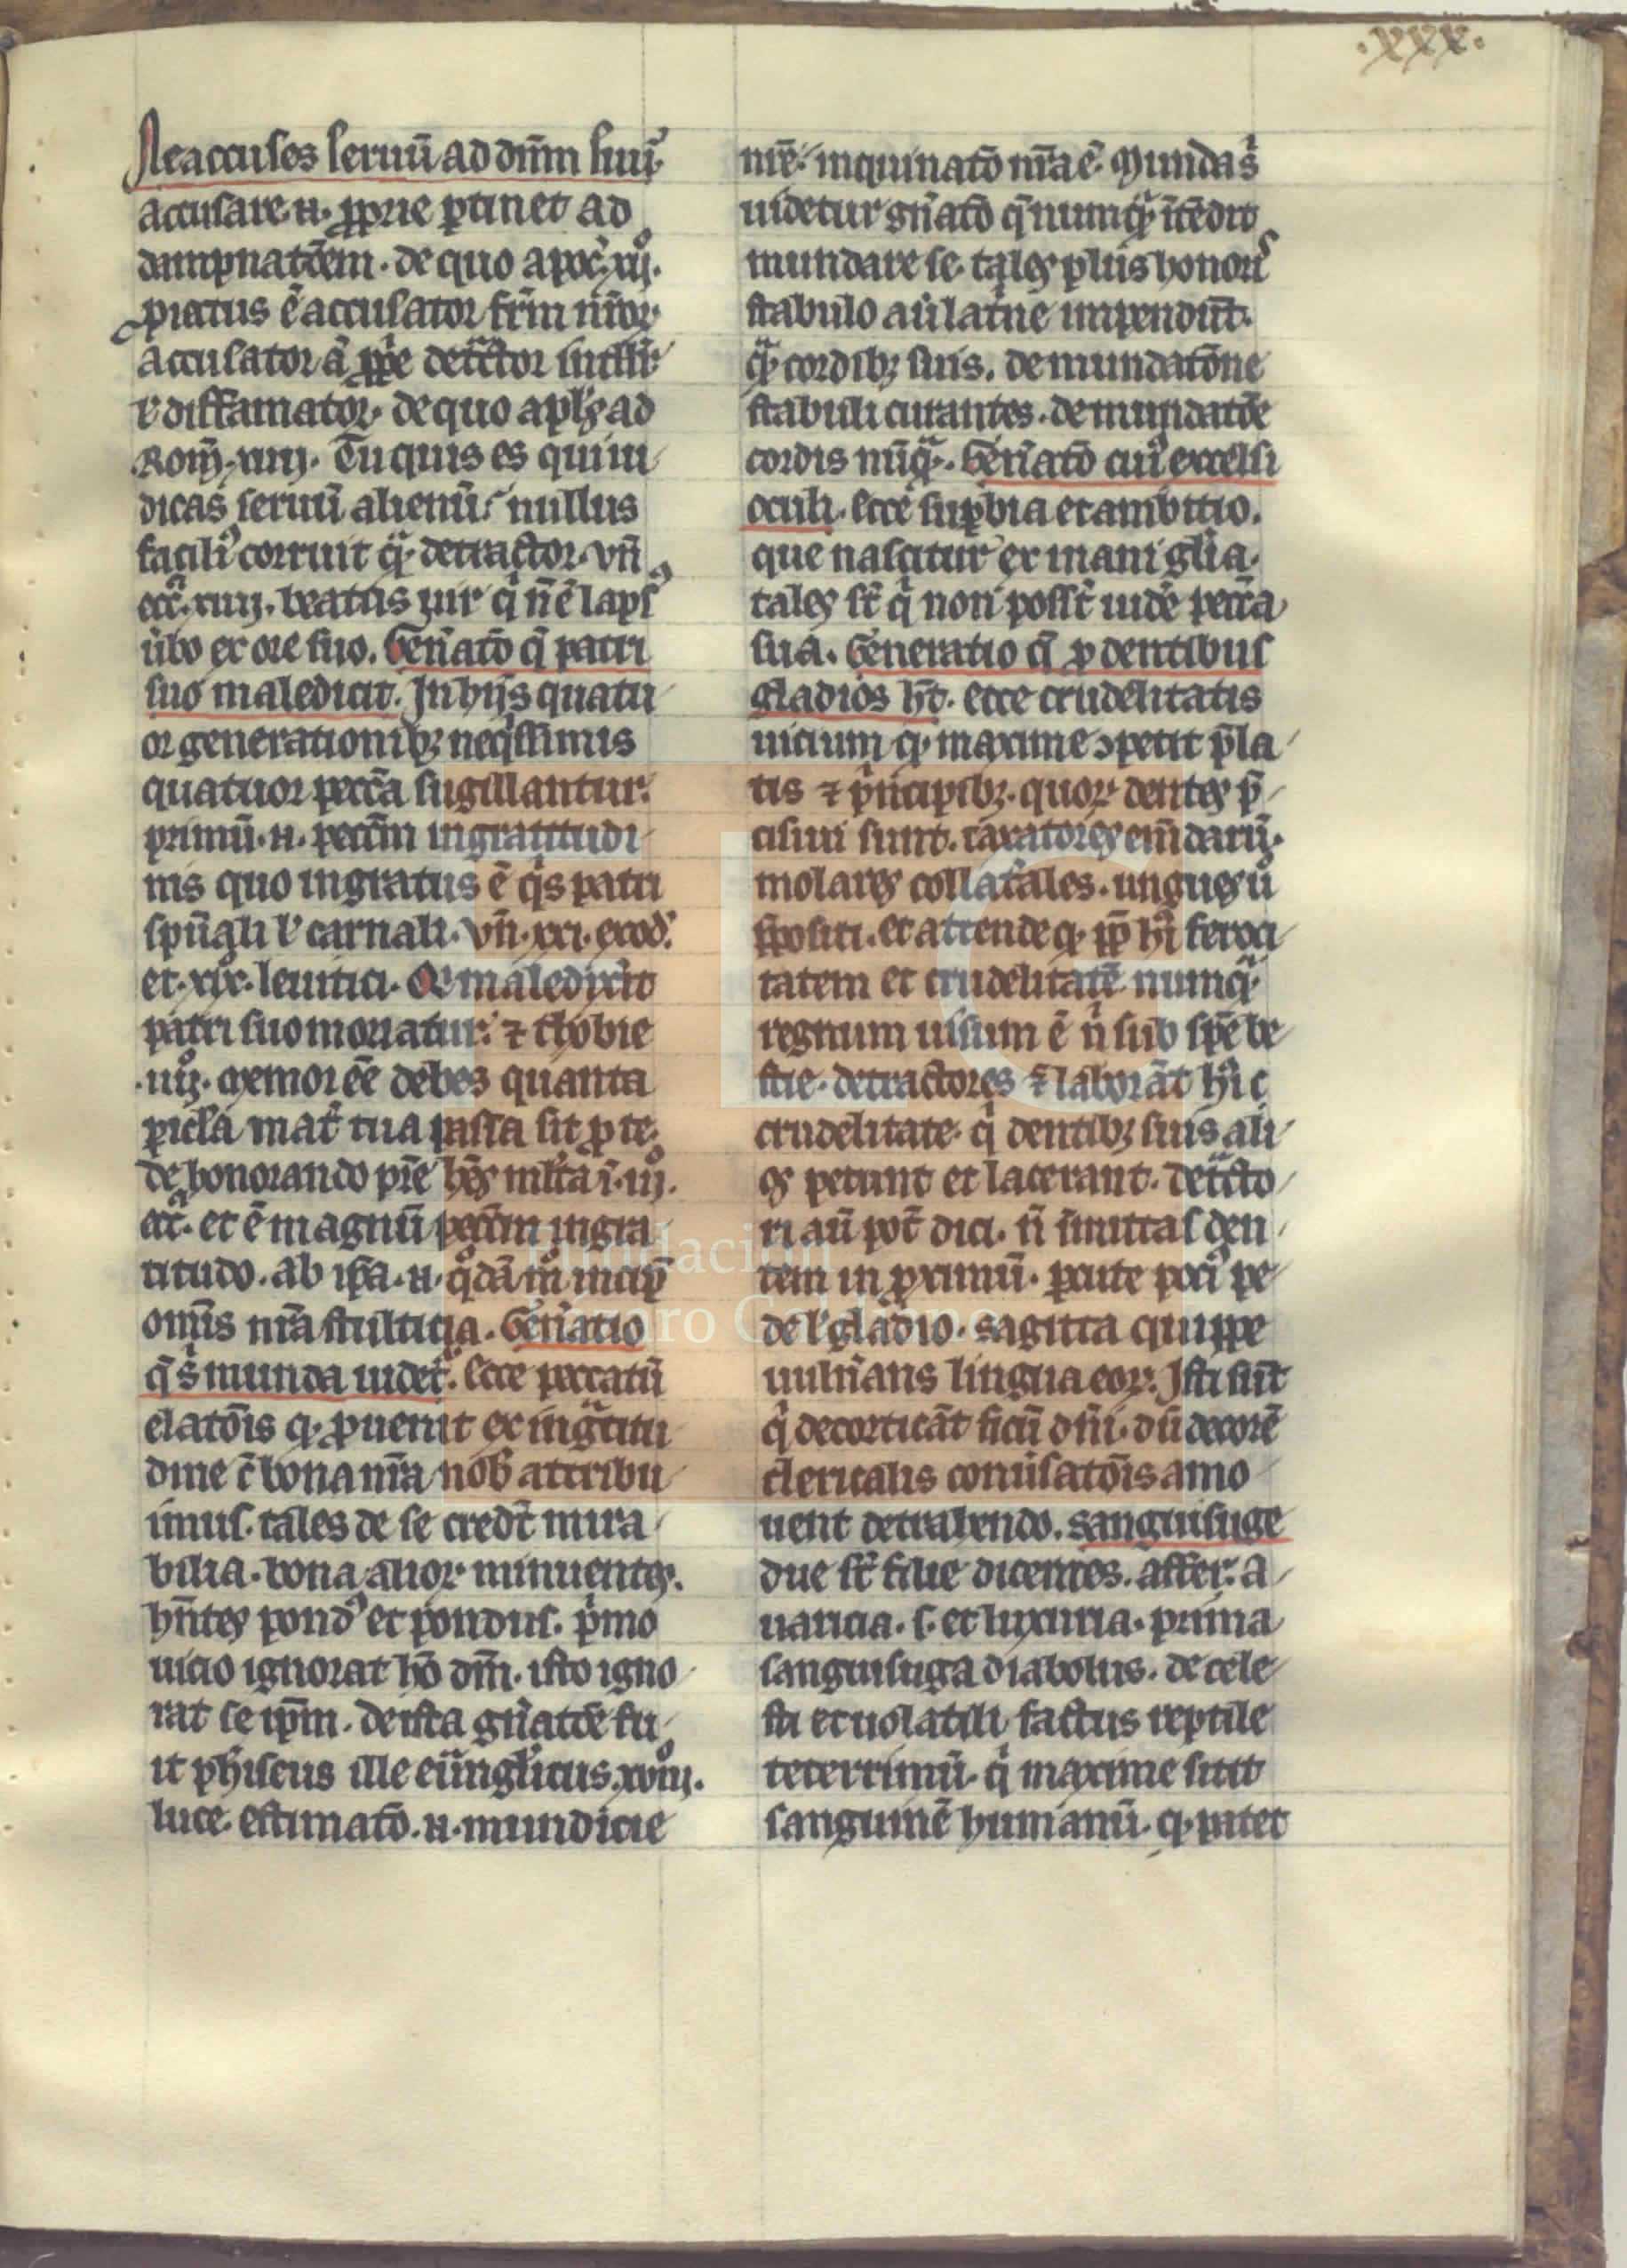 .xxx.
Ne accuses seruū ad dn̄m suū.
accusare .n. ꝓprie ꝑtinet ad
dampnatōem. de quo apoc̄. xijº.
ꝓiectus ē accusator frm̄ nr̄oꝝ.
v̓ diffamator. de quo apl̓s ad
Rom̄. xiiij. Tu quis es qui iu
dicas seruū alienū. nullus
facili᷒ corruit qᷓ detractor. vn̄
ecc̄. xiiij. beatus uir qͥ nō ē laps᷒
ūbo ex ore suo. Gen̄atō q̄ patri
suo maledicit. In hijs quatu
or generationibꝫ neqͥssimis
quatuor pecc̄a sugillantur.
primū .n. pecc̄m ingratitudi
nis quo ingratus ē qͥs patri
sp̄uali v̓ carnali. vn̄. xxi. exod̓.
et. xix. leuitici. Qͥ maledixͥit
patri suo moriatur. ⁊ thobie
.iiijº. memor eē debes quanta
ꝑicl̓a mat̓ tua passa sit ꝓ te.
de honorando pr̄e hēs ml̓ta ī. iijº.
ecc̄. et ē magnū pecc̄m ingra
titudo. ab ip̄a .n. qͦdāmº incip̄
om̄is nr̄a stultitia. Gen̄atio
q̄ s̓ munda uidet᷑. Ecce peccatū
elatōis qͥ ꝓuenit ex ingᷓtitu
dine c̄ bona nr̄a nob̓ attribu
imus. tales de se credūt mira
bilia. bona alioꝝ minuentes.
hn̄tes pond᷒ et pondus. pͥmo
uicio ignorat hō dm̄. isto igno
rat se ip̄m. de ista gn̄atōe fu
it ph̓iseus ille euᷓngl̓icus. xviijº.
luce. estimatō .n. mundicie
nr̄e. inquinatō nr̄a ē. Munda s̓
uidetur gn̄atō q̄ numqᷓ ītēdit
mundare se. tales plus honoris
stabulo aūlatͥne impendūt.
qᷓ cordibꝫ suis. de mundatōne
stabuli curantes. de mundatōe
cordis nūqᷓ. Gen̄atō cui᷒ excelsi
oculi. ecce suꝑbia et ambitio.
que nascitur ex inani gl̓ia.
tales st̄ qͥ non possūt uidē pecc̄a
sua. Generatio q̄ ꝓ dentibus
gladios ht̄. ecce crudelitatis
uicium qͥ maxime ↄpetit p̄la
tis ⁊ pͥncipibꝫ. quoꝝ dentes p̄
cisiui sunt. taxatores emēdarū.
molares collat̓ales. ungues ū
p̄positi. et attende qͥ ꝓp̄ hͥ feroci
tatem et crudelitatē numqᷓ
regnum uisum ē n̄ sub spē be
stie. detractores ⁊ laborāt hͥc
crudelitate. qͥ dentibꝫ suis ali
os petunt et lacerant. det̄cto
ri aū pōt dici. n̄ īmittas den
tem in ꝓximū. ꝑcute poci᷒ pe
de l̓ gladio. sagitta quippe
uuln̄ans lingua eoꝝ. Isti sūt
qͥ decorticāt ficū dn̄i. dū decorē
clericalis conūsatōis amo
uent detrahendo. Sanguisuge
due st̄ filie dicentes. affer. a
uaricia .s. et luxuria. prima
sanguisuga diabolus. de cele
sti et uolatili factus reptile
teterrimū. qͥ maxime sitit
sanguinē humanū. qͥ patet